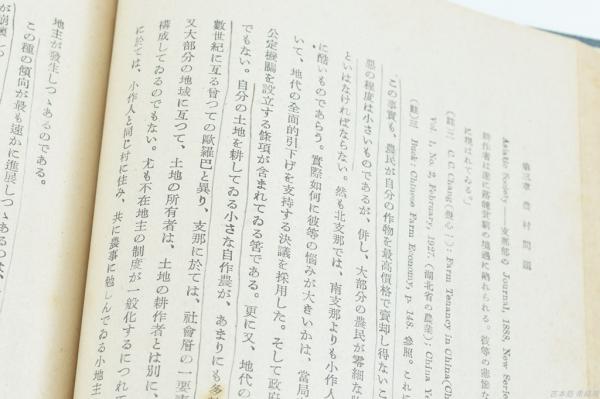 第三章 農村問題
Asiatic Society——支那部の Journal, 1888, New Series
耕作者は遂に
に埋もれてゐる。」
(註二) C. C. Chang : Farm Tenancy in China(Chi
Vol. 1, No. 2, February, 1927.(湖北省の農業); China Ye
(註)三 Buck: Chinese Farm Economy, p. 148. 參照。これ
この事實も、農民が自分の作物を最高價格で賣却し得ないこ
惡の程度は小さいものであるが、併し、大部分の農民が零細な
といはなければならない。然も北支那では、南支那よりも小作人
に酷いものであらう。實際如何に彼等の惱みが大きいかは、當局
いて、地代の全面的引下げを支持する決議を採用した。そして政府
公定機關を設立する條項が含まれてゐる筈である。更に又、地代の
でもない。自分の土地を耕してゐる小さな自作農が、あまりにも
數世紀に亙る曾つての歐羅巴と異り、支那に於ては、社會層の一要
又大部分の地域に亙つて、土地の所有者は、土地の耕作者とは別に、
構成してゐるのでもない。尤も不在地主の制度が一般化するにつれて
に於ては、小作人と同じ村に住み、共に農事に勉しんでゐる小地主
地主が發生しつゝあるのである。
この種の傾向が最も速かに進展しつゝあるのは、
が崩壞し